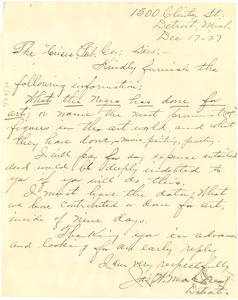 1500 Clinton St.
Detroit, Mich.
Dec 17-27
The Crisis Pub. Co; Sirs:-
Kindly furnish the
following information;
What the Negro has done for
art; or name the most prominent
figures in the art world, and what
they have done, music, painting, poetry.
I will pay for any expense entailed
and would be deeply indebted to
you if you will do this.
I must have the data; What
we have contributed or done for art,
inside of nine days.
Thanking you in advance
and looking for an early reply
I am very respectfully
Jas. W.
Detroit